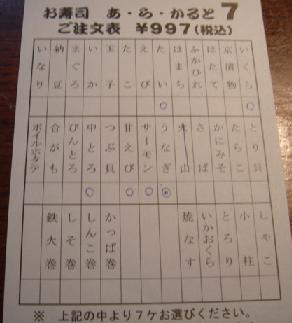 お寿司 あ・ら・かると 7
ご注文表 ¥997(税込)
いくら
京漬物
ふかひれ
はまち
たい
えび
たこ
いか
まぐろ
納豆
いなり
とり貝
たらこ
かにみそ
さば
うなぎ
サーモン
甘えび
つぶ貝
中とろ
びんとろ
合がも
ボイルホタテ
しゃこ
小柱
とろり
いかおくら
焼なす
かっぱ巻
しんこ巻
しそ巻
鉄火巻
※ 上記の中より7ケお選びください。